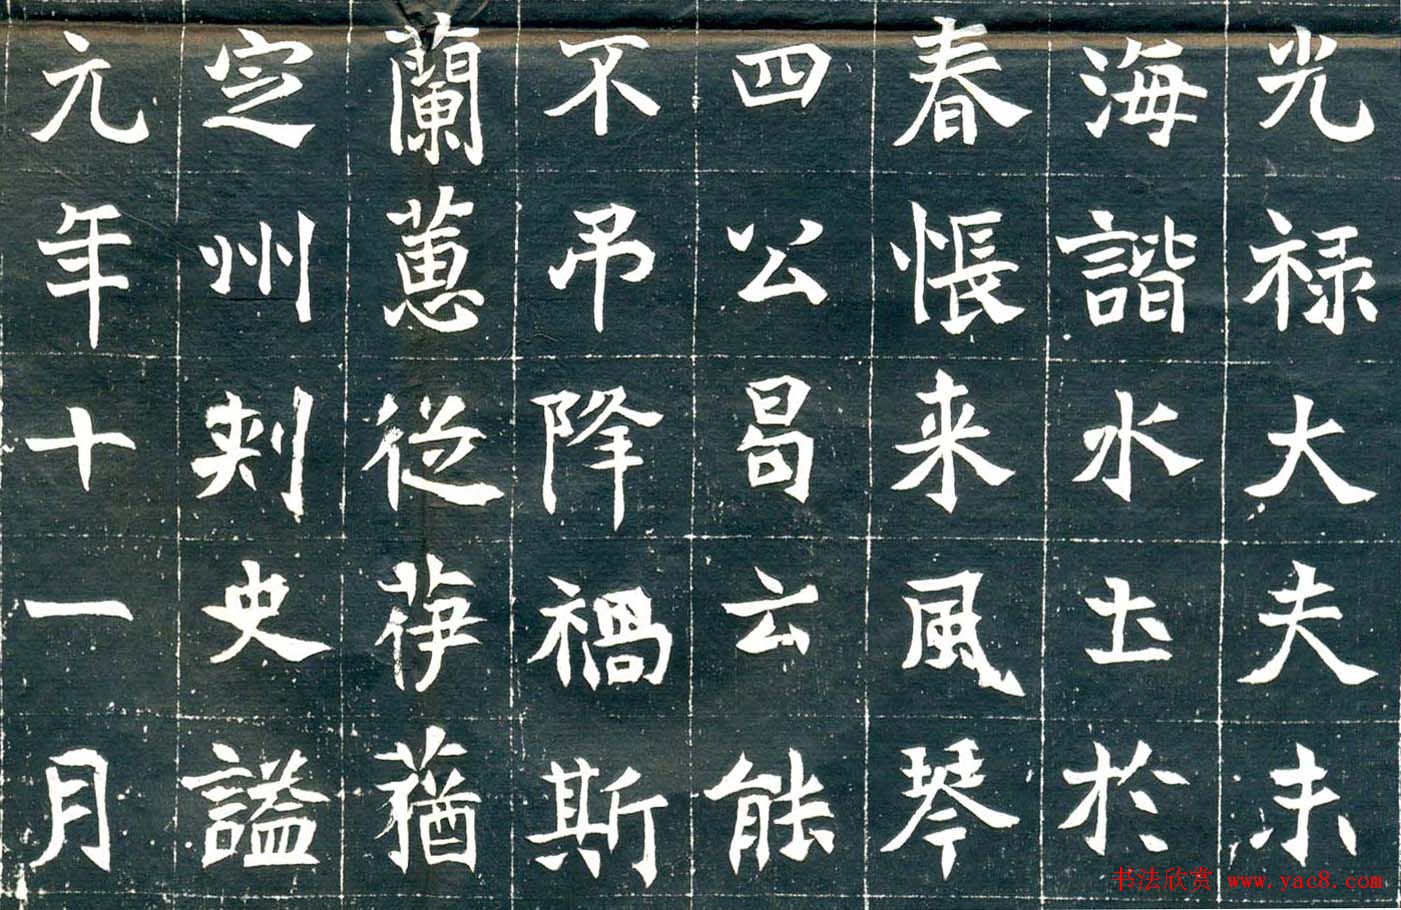 光禄大夫未
海諧水土於
春悵来風琴
四公曷云能
不吊降禍斯
蘭蕙從蕕
定州刾史謚
元年十一月
书法欣赏 www.yac8.com